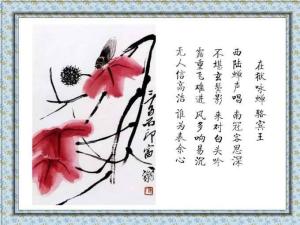 在狱咏蝉 骆宾王
西陆蝉声唱 南冠客思深
不堪玄鬓影 来对白头吟
露重飞难进 风多响易沉
无人信高洁 谁为表余心
三百石印富翁